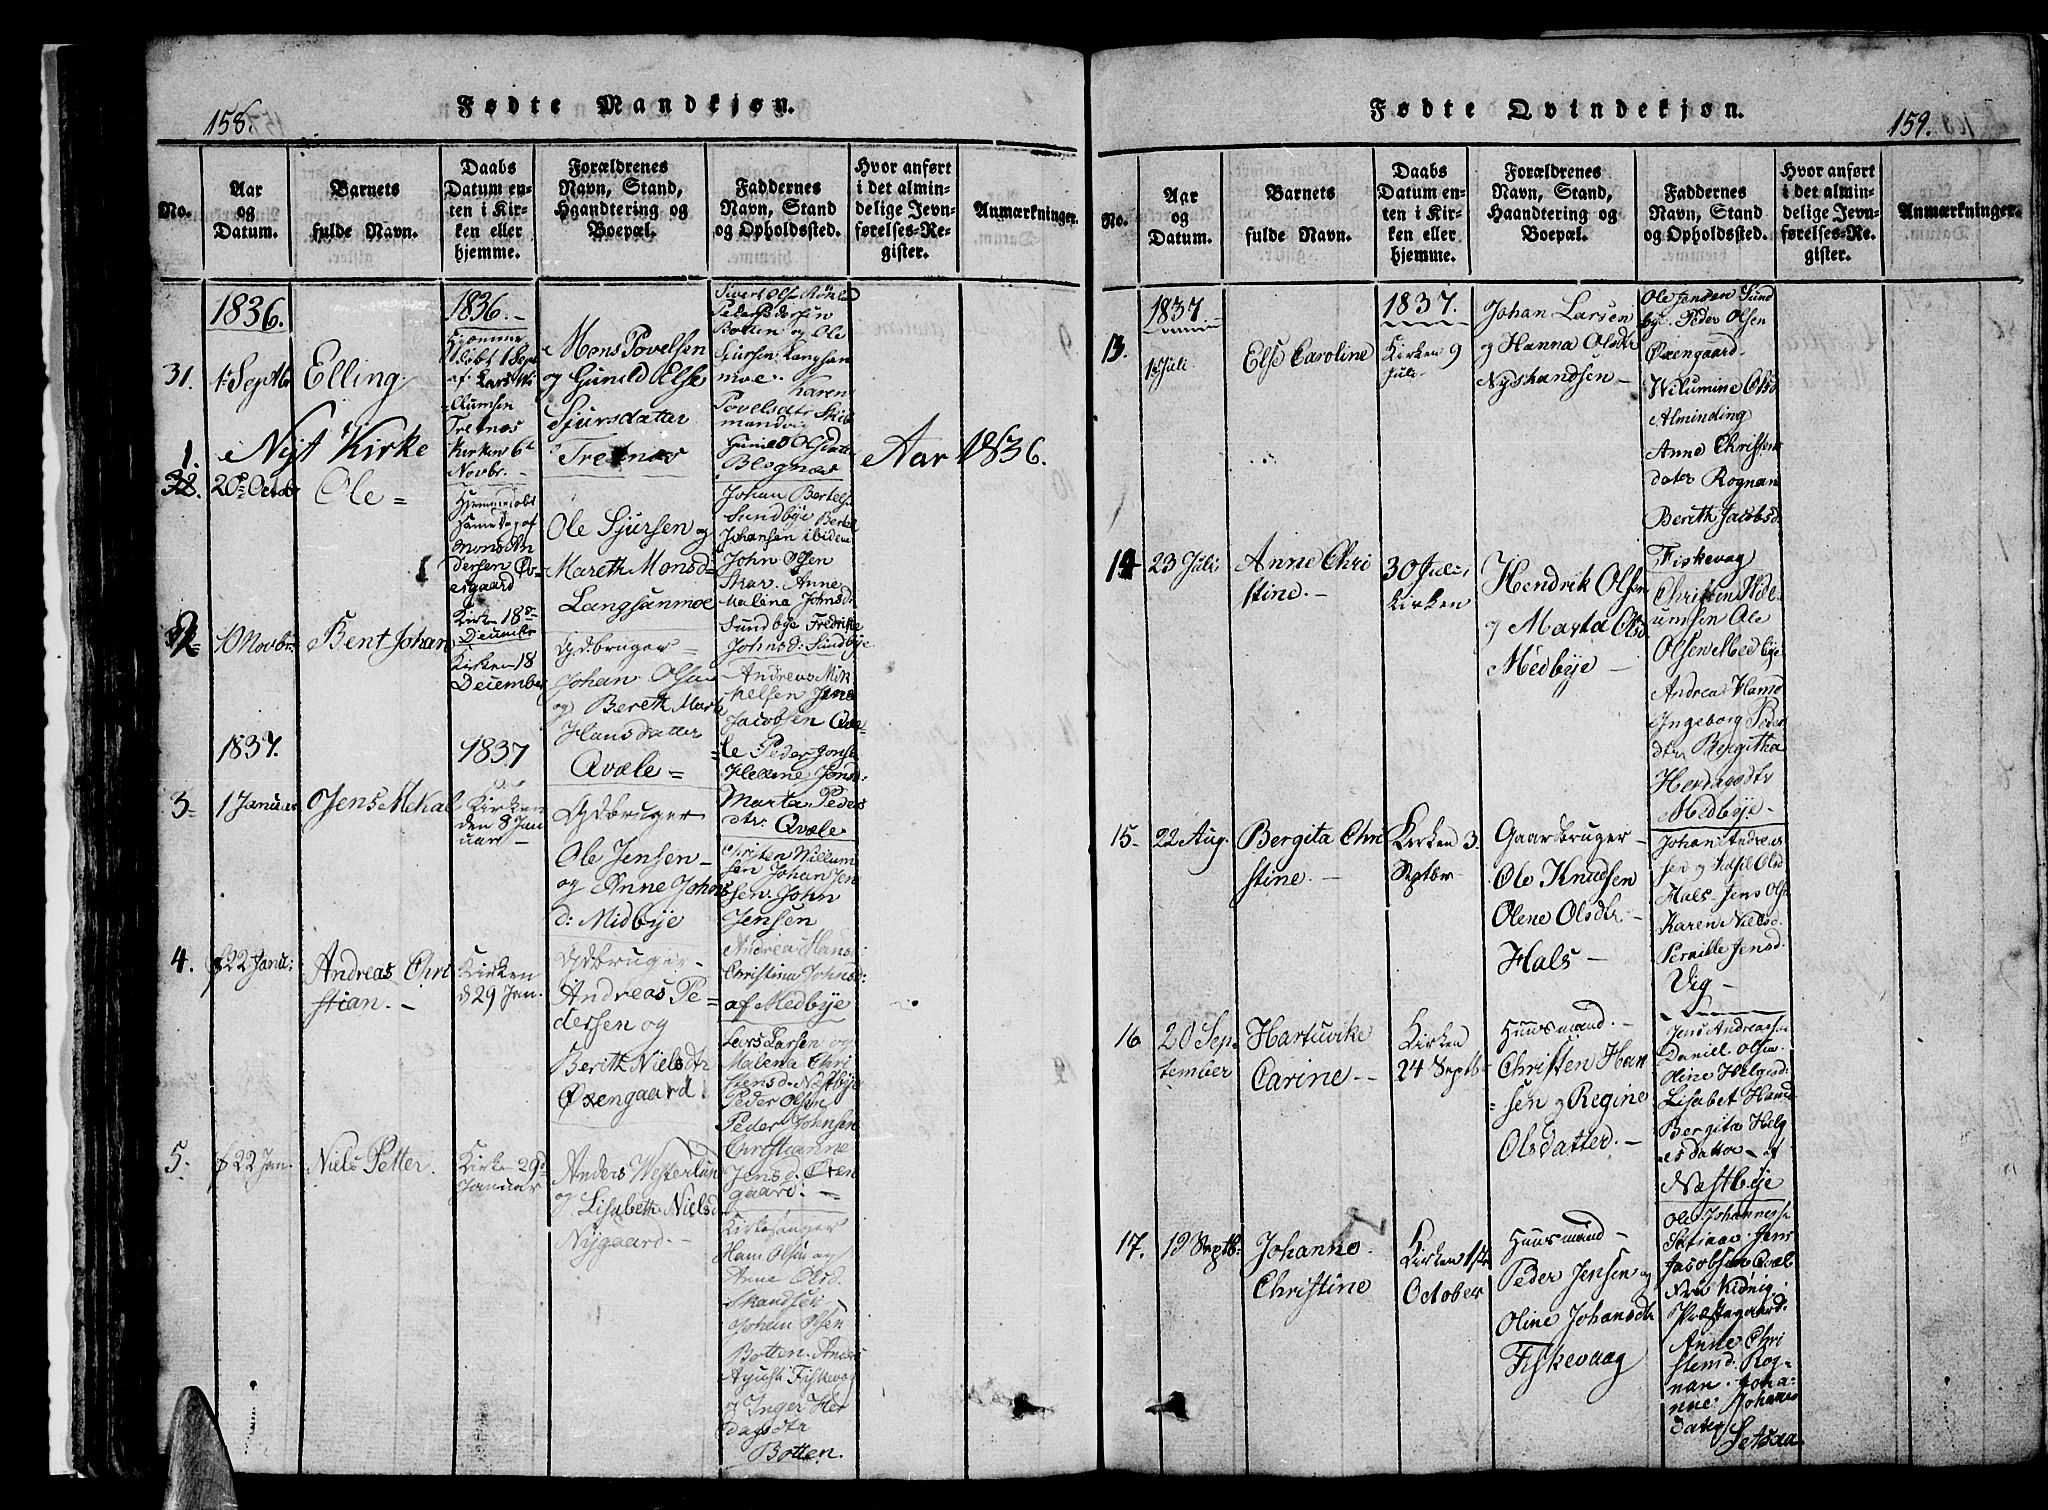 158.
Fødte Mandkjøn.
No.
Aar
og
Datum.
Barnets
fulde Navn.
Daabs
Datum en-
ten i Kir-
ken eller
hjemme.
Forældrenes
Navn, Stand,
Hgandtering og
Boepæl.
Faddernes
Navn, Stand
og Opholdssted.
Hvor anført
i det almin-
delige Jevn-
førelses-Re-
gister.
Anmærkninger.
1836.
1836.-
31.
1 Septbr
Elling
Hjemme
døbt 1 Sept
af Lars Wi
llumsen
Tretnæs
Kirken 6te
Novbr.-
Mons Povelsen
og Gunild Else
Sjursdatter
Tretnæs
Sivert Olsen
Peder Pedersen
Botten og Ole
Sjursen Langsan
moe. Karen
Povelsdtr
Gunild Olsdatter
Nyt Kirke Aar 1836.
1.
20de Octob
Ole =
Hjemmedøbt
samme Dag af
Mons An
dersen
Kirken 18de
December
Ole Sjursen og
Mareth Monsd=
Langsanmoe
Johan Bertels
Sundbye Bertel
Johansen ibidem
John Olsen
Skar. Anne
Malena Johnsd:
Sundbye Fredrike
Johnsd: Sundbye
2
10 Novbr:
Bent Johan
Kirken 18
December
Gdbruger =
Johan Olsen
og Bereth Marte
Hansdatter
Qvæle =
Andreas Mik
kelsen Jens
Jacobsen Qvæ
le Peder Jonse
Helene Jonsd:
Marta Peders
dtr: Qvæle
1837.
1837
3-
1 Januar
Jens Mekal
Kirken
den 8 Jan
uar -
Gdbruger
Ole Jensen -
og Anne Johns
d: Midbye
Christen Willum
sen Johan Jen
sen. John
Jensen
Andrea Hans
Christina Johnsd:
af Medbye
4.
22 Janu:
Andreas Chri
stian. -
Kirken
d 29 Jan.
Gdbruger -
Andreas Pe=
dersen og
Berith Nielsdtr
Øxengaard.
Lars Larsen og
Malena Chri
stensd: Næstbye
Peder Olsen
Peder Johnsen
Christianne
Jensd: Øxen
gaard. -
5.
22 Jan.
Niels Petter.
Kirken 29de
Januar
Anders Westerlund
og Lisabeth Nielsd
Nygaard. -
Kirkesanger
Hans Olsen og
Anne Olsd.
Skandsen
Johan Olsen
Botten. Anders
August Fiskevag
og Inger Her
dagsdtr
Botten.
Fødte Qvindekjøn.
159.
No.
Aar
og
Datum.
Barnets
fulde Navn.
Daabs
Datum en-
ten i Kir-
ken eller
hjemme.
Forældrenes
Navn, Stand,
Haandtering og
Boepæl.
Faddernes
Navn, Stand
og Opholdssted.
Hvor anført
i det almin-
delige Jevn-
førelses-Re-
gister.
Anmærkninger.
1837.
1837.
13.
1 Juli
Else Caroline
Kirken 9
Juli.
Johan Larsen
og Hanna Olsdtr
Nyshandsen -
Ole Jensen Sund
bye. Peder Olsen
Øxengaard.
Wilumine Olsd
Alminding
Anne Christens
dater Rognan
Berith Jacobsd.
Fiskevag
14
23 Juli
Anne Chri
stine. -
30 Juli
Kirken
Hendrik Olsen
og Marta Olsd
Medbye -
Christen Will
umsen Ole
Olsen Medbye
Andrea Hansd
Ingeborg Peder
dtr. Bergitha
Herdagsdtr
Medbye -
15-
22 Aug.
Bergita Chri
stine. -
Kirken 3
Septbr
Gaardbruger -
Ole Knudsen
Olene Olsdtr. -
Hals -
Johan Andreas
sen og Sidsil Olsd
Hals - Jens Ols
Karen Nielsd.
Pernille Jensd.
Vig -
16
20 Sep-
tember
Hartuvike
Carine. -
Kirken
24 Septb-
Huusmand. -
Christen Han
sen og Regine
Olsdatter. -
Jens Andreassen
Daniel Olsen.
Oline Helgesd:
Lisabet Hansd
Bergita Helg
esdatter - af
Næstbye
17.
19 Septb-
Johanne
Christine
Kirken 1ste
October
Huusmand -
Peder Jensen og
Oline Johansdtr
Fiskevaag
Ole Johannesse
Jens
Jacobsen Qvæl
Fru Klönig
Præstegaard.
Anne Chri
stensd. Rog-
nan. Joha-
nne Johannes
dater
Setsaa